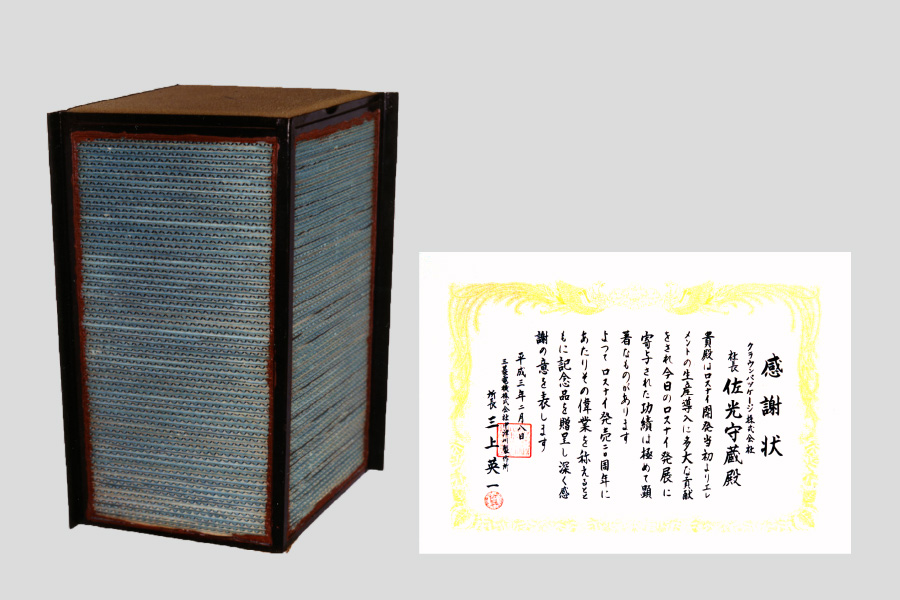 感謝状
クラウンパッケージ株式会社
社長 佐光守蔵殿
貴殿はロスナイ開発当初よりエレ
メントの生産導入に多大な貢献
をされ今日のロスナイ発展に
寄与された功績は極めて顕
著なものがあります
よつてロスナイ発売二〇周年に
あたりその偉業を称えると
もに記念品を贈呈し深く感
謝の意を表します
平成三年二月八日
三菱電機株式会社中津川製作所
所長 三上英一